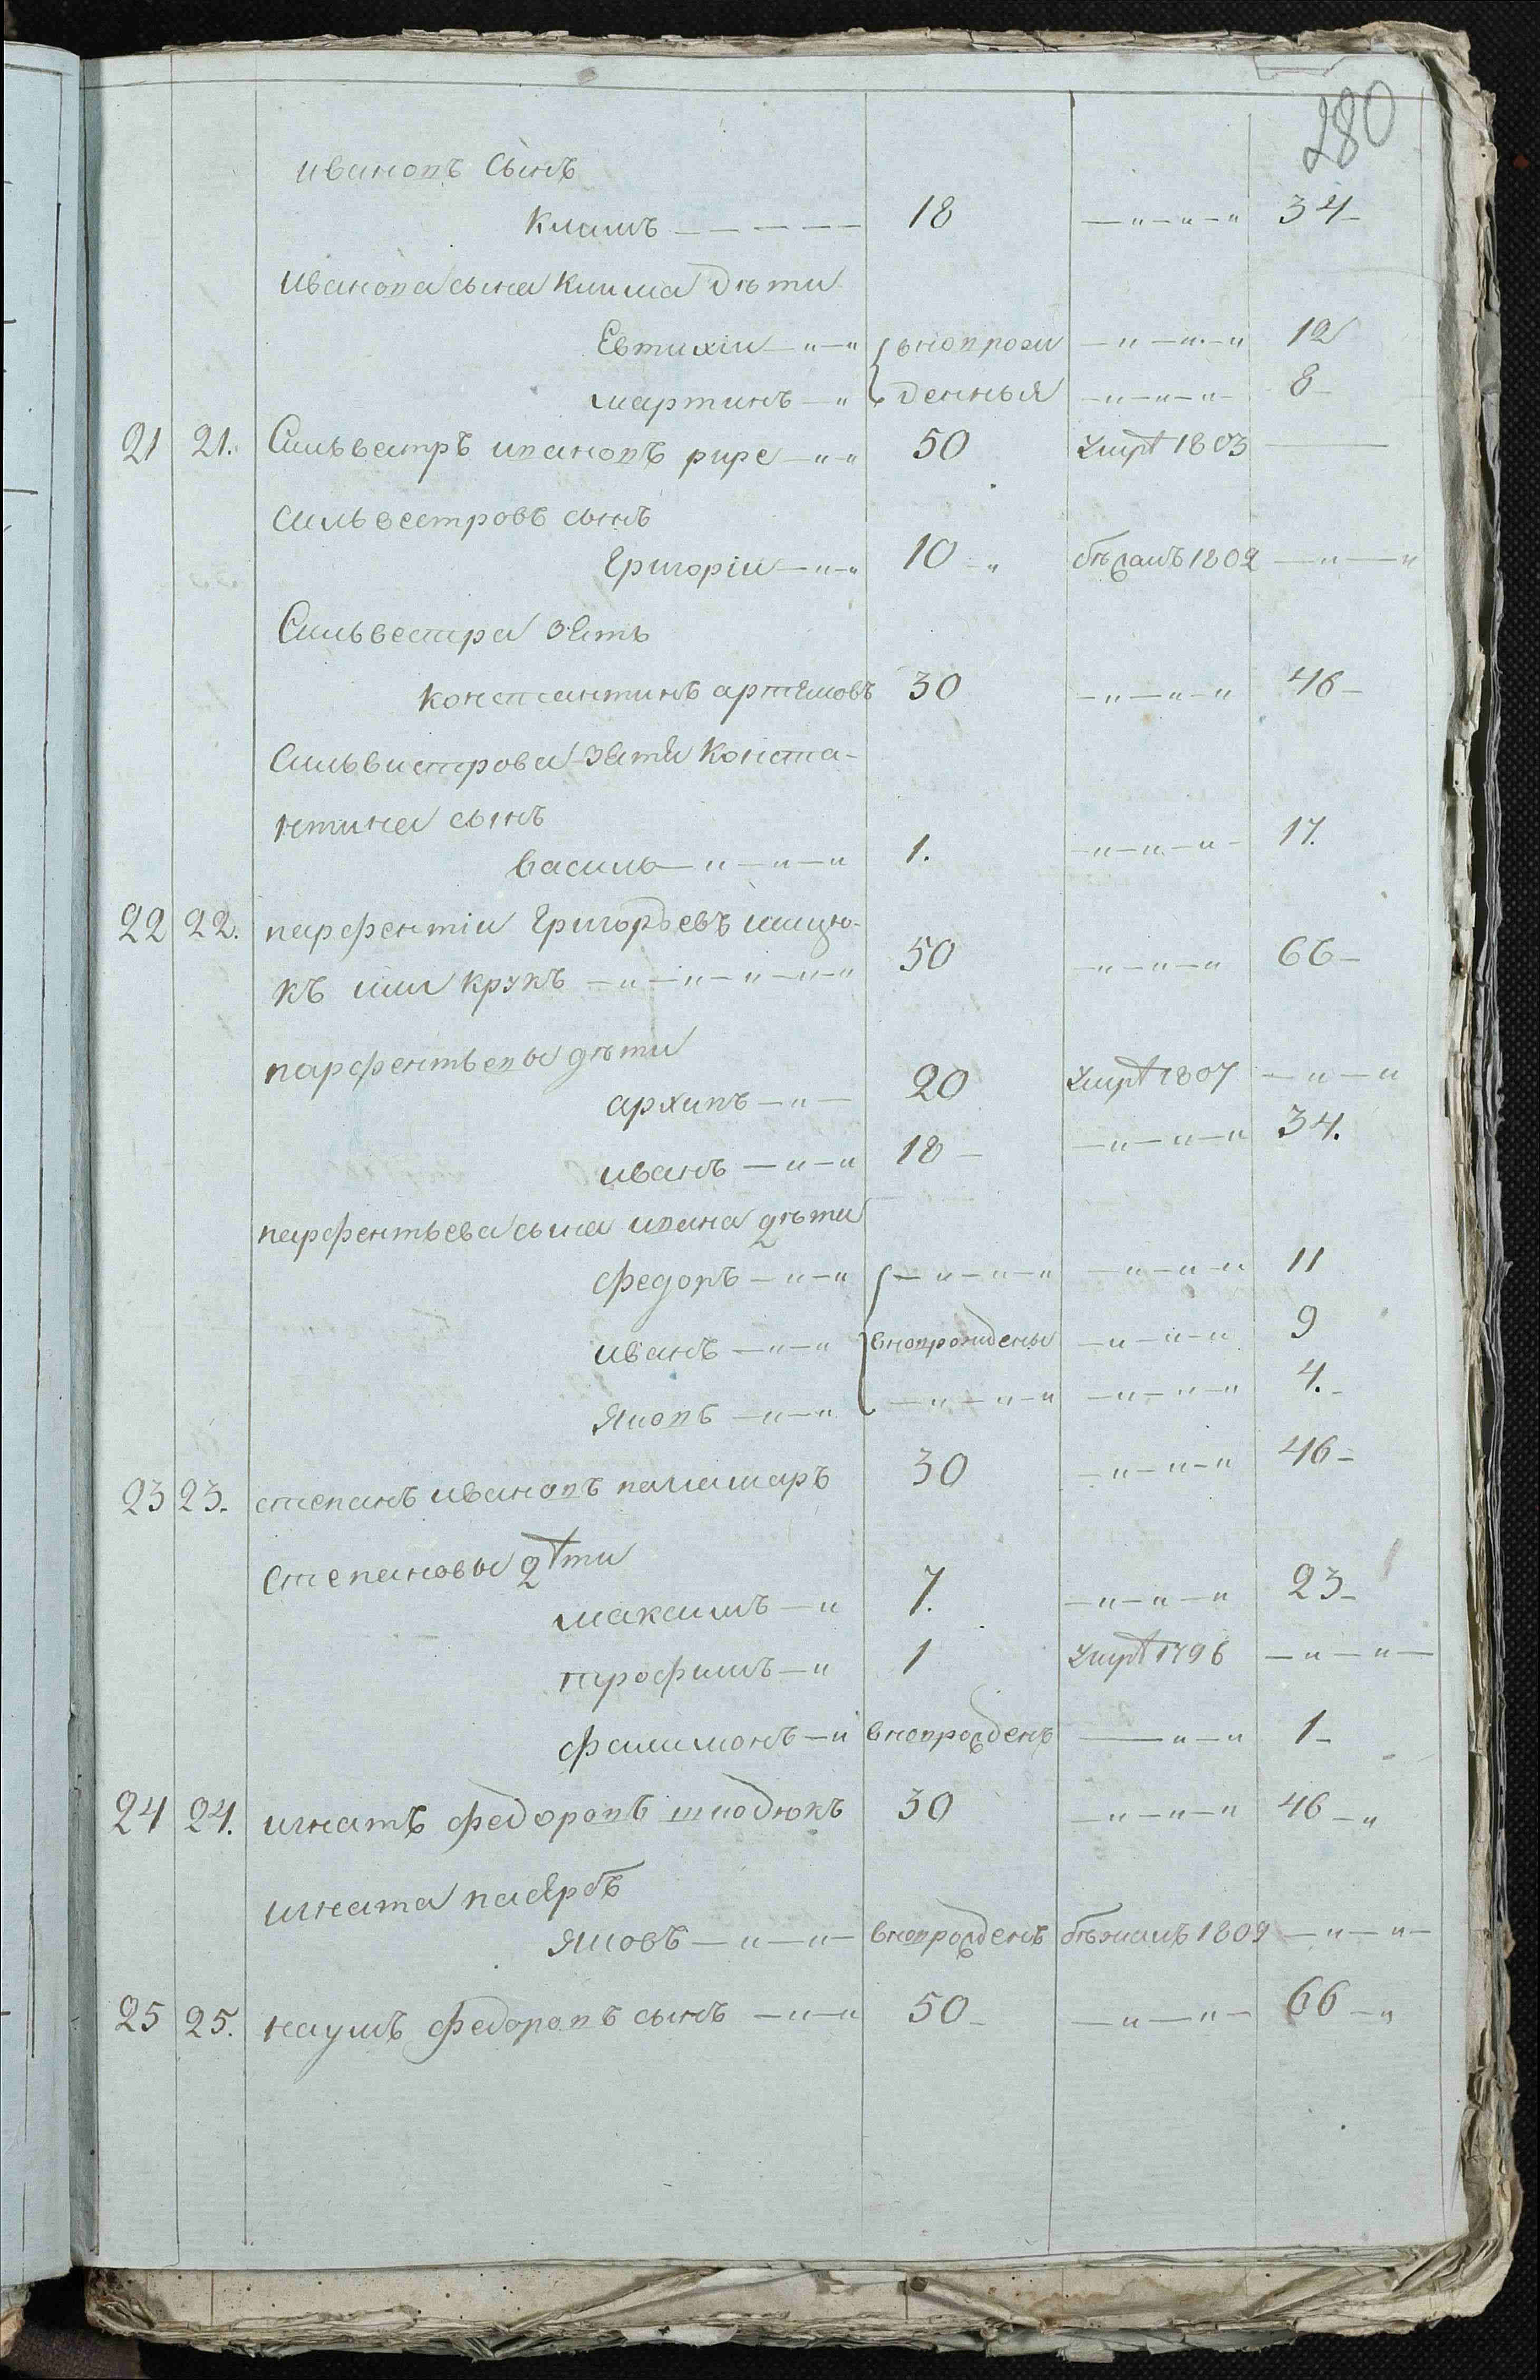 280
ивановъ сынъ
Климъ 18 34
Иванова сына Клима дѣти
Евтихіи вновьрож 12
мартинъ денныя 8
21 21. Сильвестръ ивановъ 50 умре 1803
сильвестровъ сынъ
Григоріи 10 бѣжалъ 1802
Сильвестра зять
констянтинъ артемовъ 30 46
Сильвистрова зятя Конста-
нтина сынъ
василь 1. 17.
22 22. парфентіи Григорьевъ
къ или крукъ 50 66
парфентьевы дѣти
архипъ 20 умре 1807
иванъ 18 34.
парфентьева сына ивана дѣти
федоръ 11
иванъ вноврождены 9
Яковъ 4.
23 23. степанъ ивановъ паламаръ 30 46
Степановы дѣти
максимъ 7. 23
трофимъ 1 умре 1796
филимонъ вноврожденъ 1
24 24. игнатъ федоровъ 30 46
игната пасярбъ
Яковъ вноврожденъ бѣжалъ 1809
25 25. наумъ федоровъ сынъ 50 66